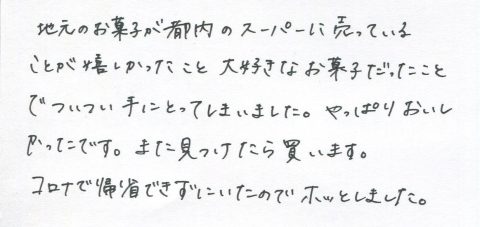 地元のお菓子が都内のスーパーに売っている
ことが嬉しかったこと 大好きなお菓子だったこと
でついつい手にとってしまいました。やっぱりおいし
かったです。また見つけたら買います。
コロナで帰省できずにいたのでホッとしました。